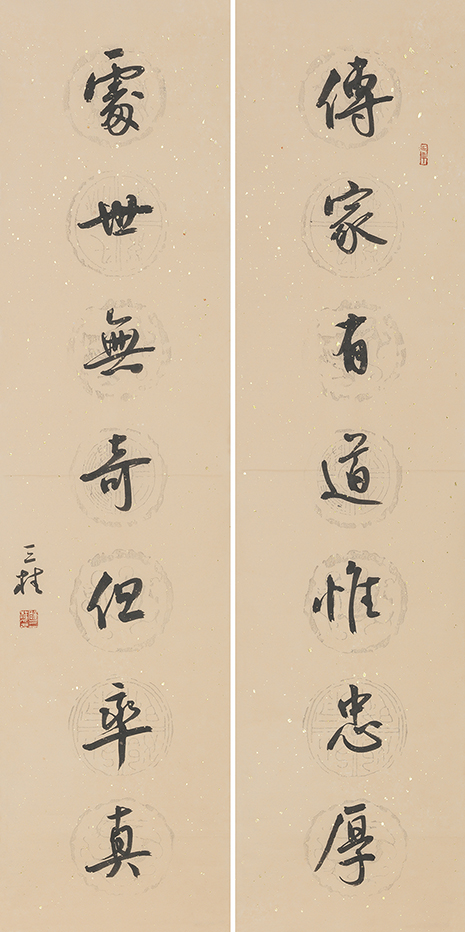 傳家有道惟忠厚
處世無奇但率真
三桂